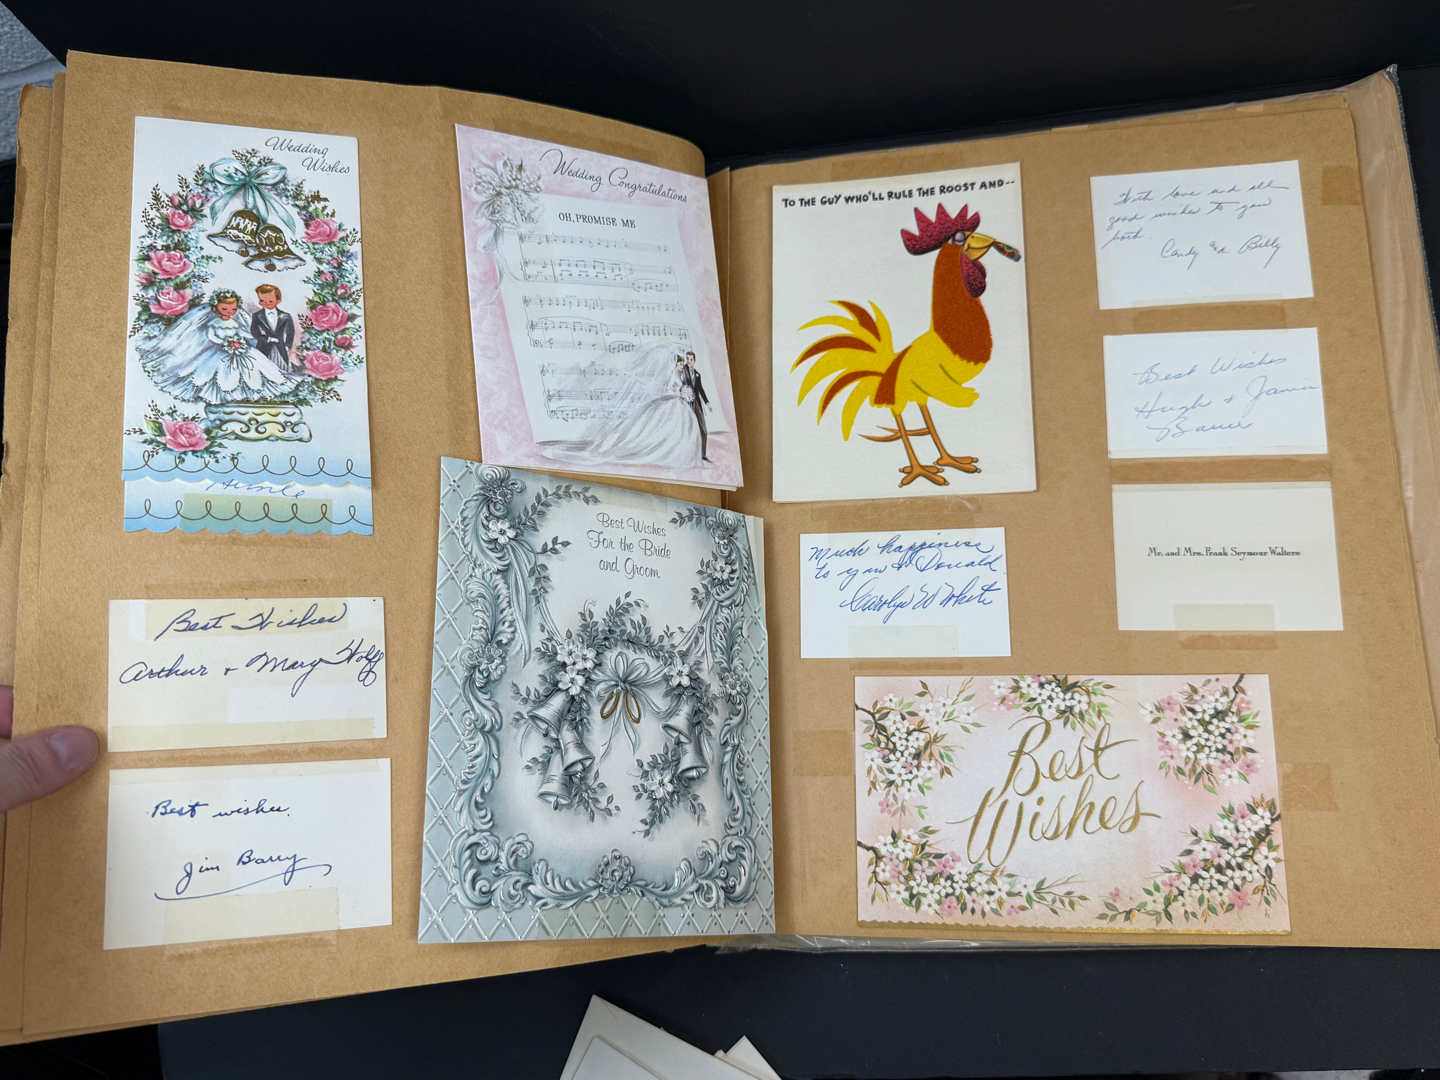 Wedding
Wishes
Best Wishes
Arthur + Mary Wolff
Best wishes.
Jim Barry
Wedding Congratulations
OH, PROMISE ME
Best Wishes
For the Bride
and Groom
TO THE GUY WHO'LL RULE THE ROOST AND--
Much happiness
to you & Donald
Carolyn W White
With love and all
good wishes to you
both.
Candy and Billy
Best Wishes
Hugh + Janie
Mr. and Mrs. Frank Seymour Walters
Best
Wishes